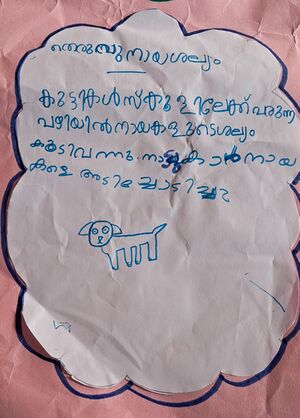 തെരുമ്പു നായശല്യം
കുട്ടികൾ സ്കൂളിലേക്ക് വരുന്ന
വഴിയിൽ നായകളുടെ ശല്യം
കൂടിവന്നു. നാട്ടുകാർ നായ
കളെ അടിച്ചോടിച്ചു